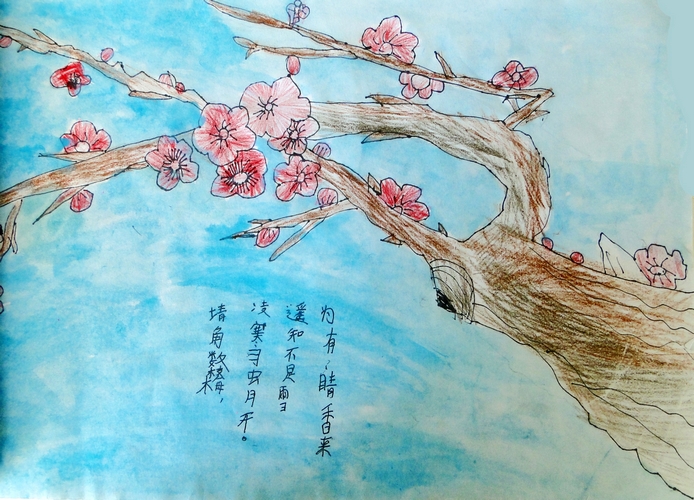 墙角数梅，
凌寒独自开。
遥知不是雪
为有晴香来